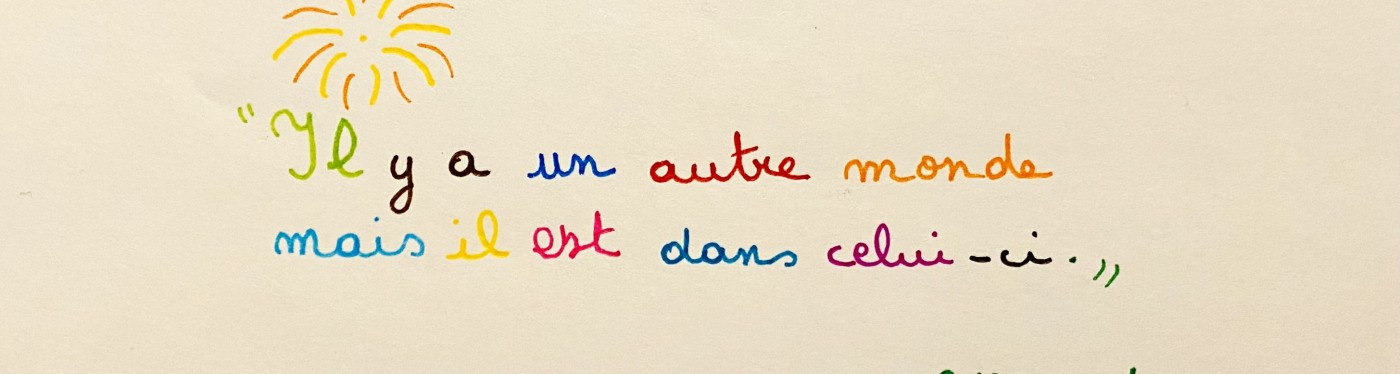 "Il y a un autre monde
mais il est dans celui-ci."